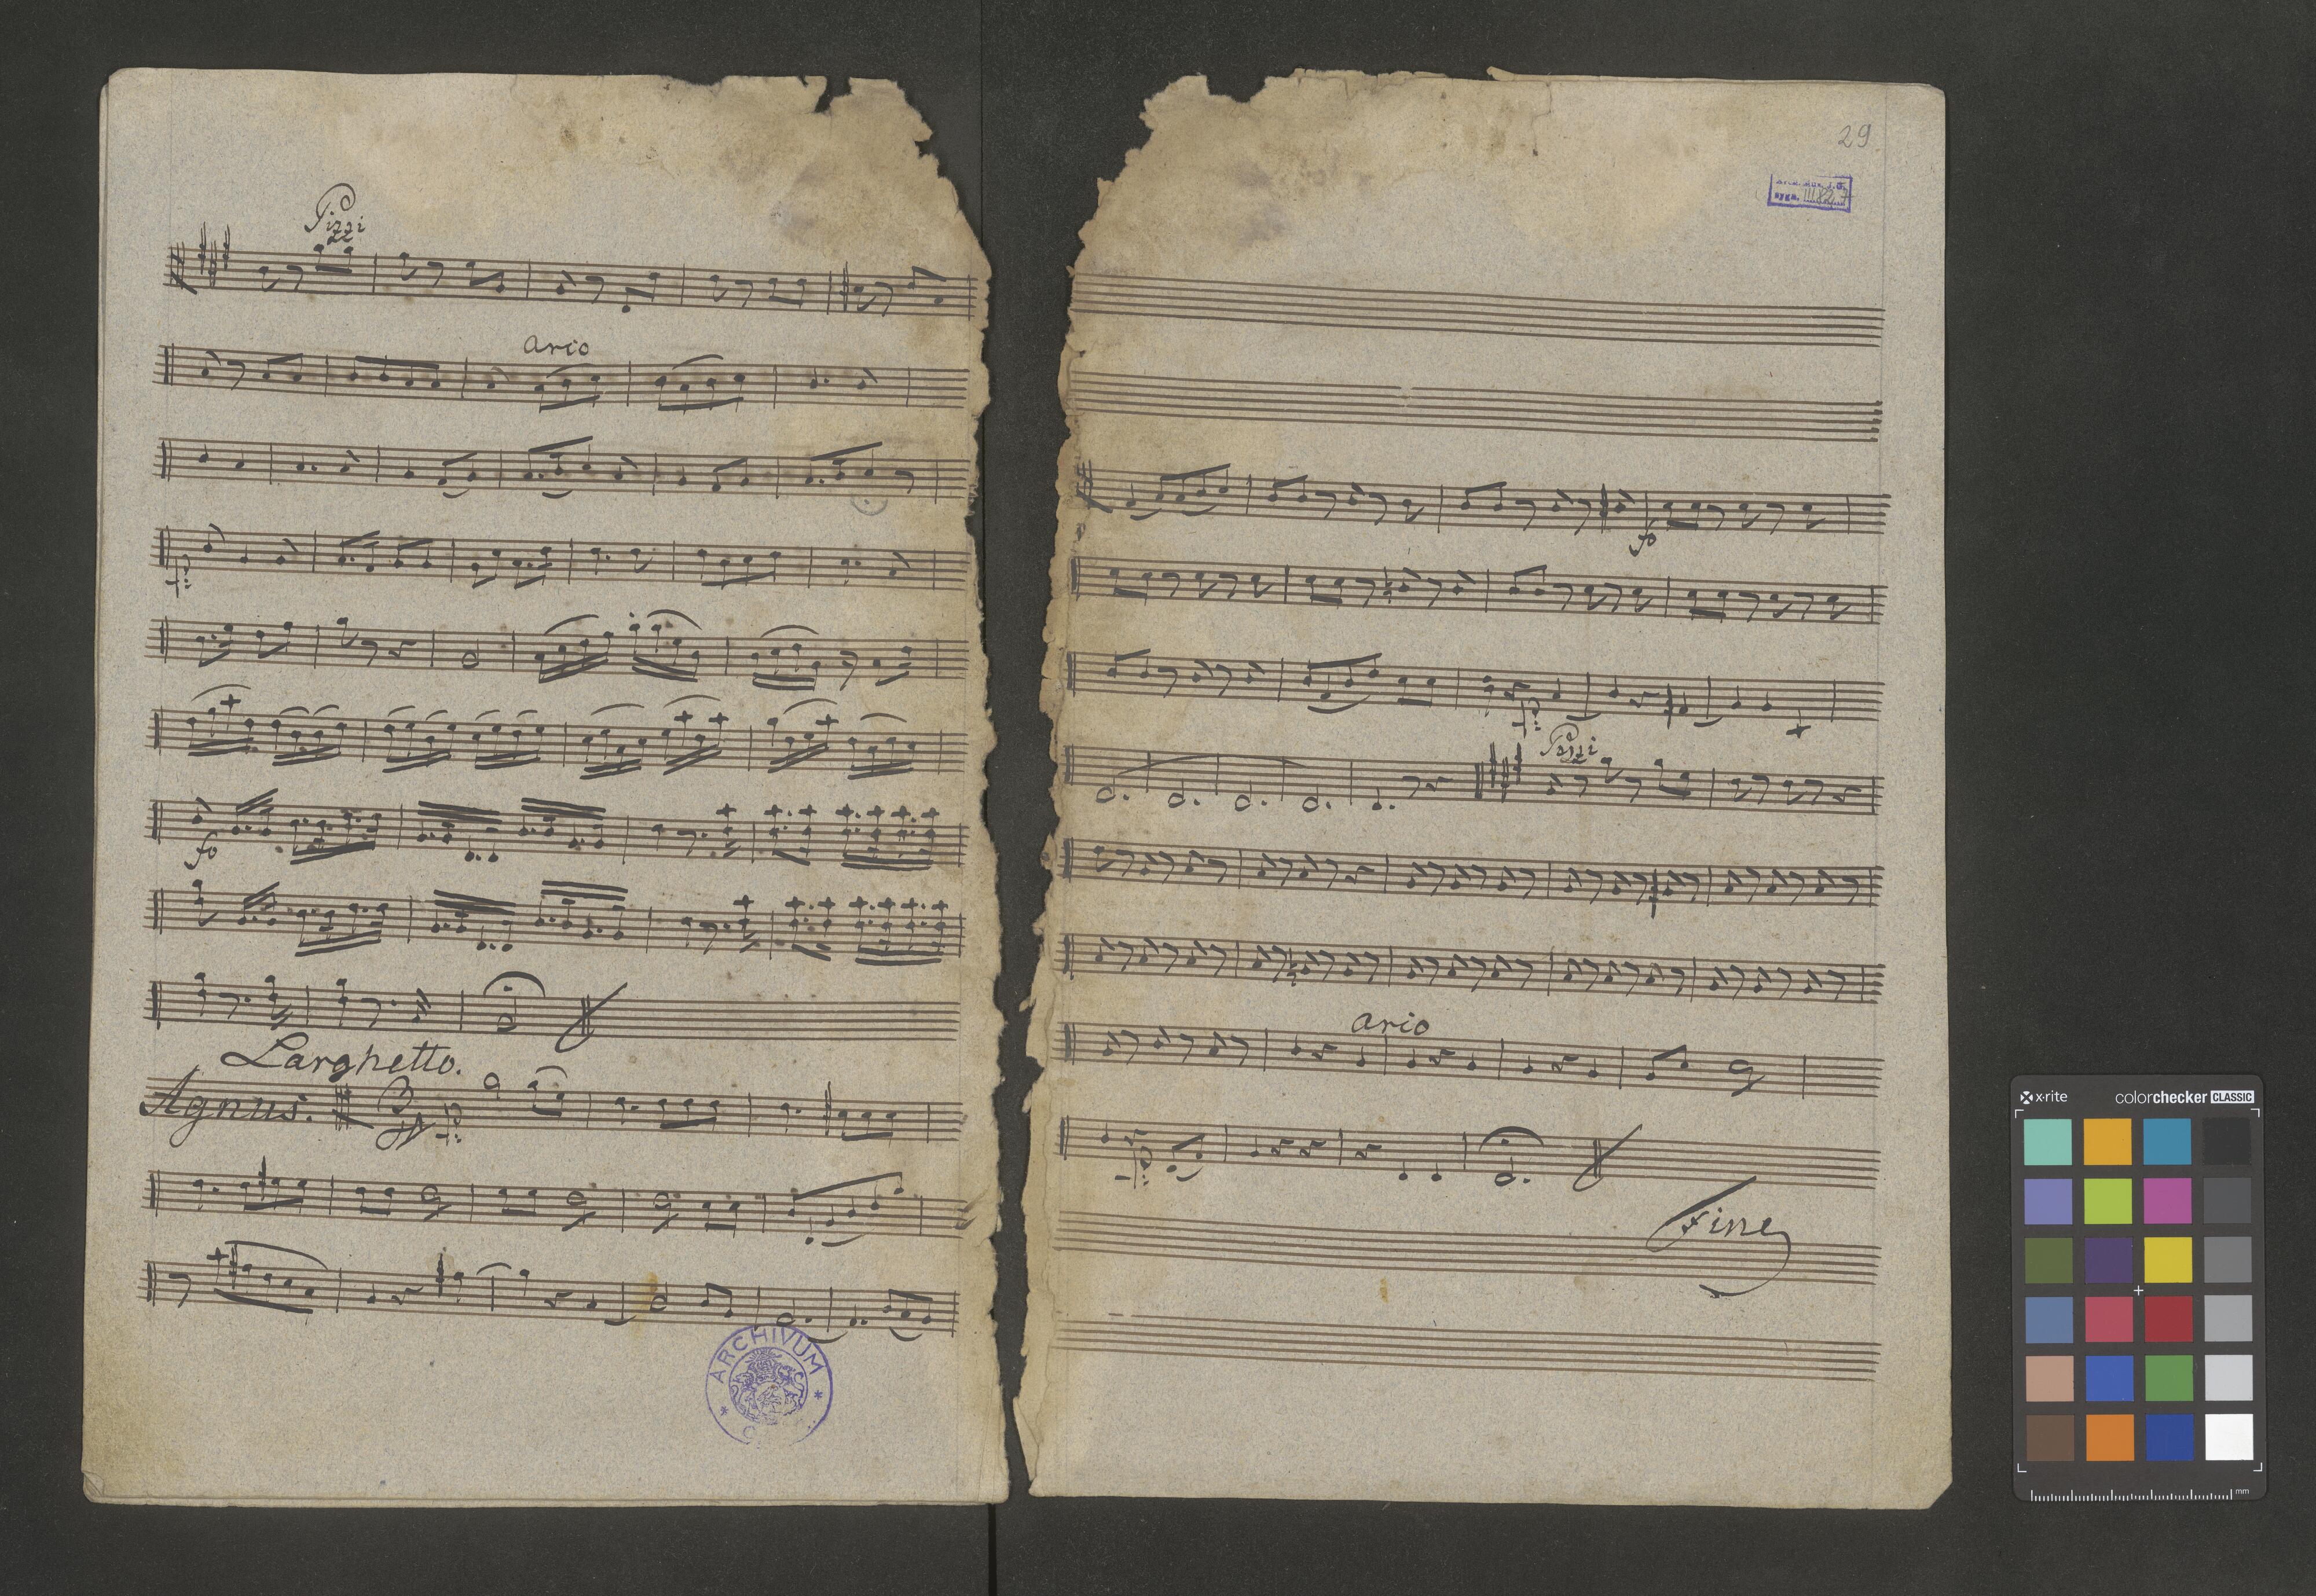 Pizzi
arco
fo
Larghetto.
Agnus:
p:
ARCHIVUM
29
sygn. III 82,7
fo
p:
Pizzi
arco
p:
Fine
x-rite
colorchecker CLASSIC
mm